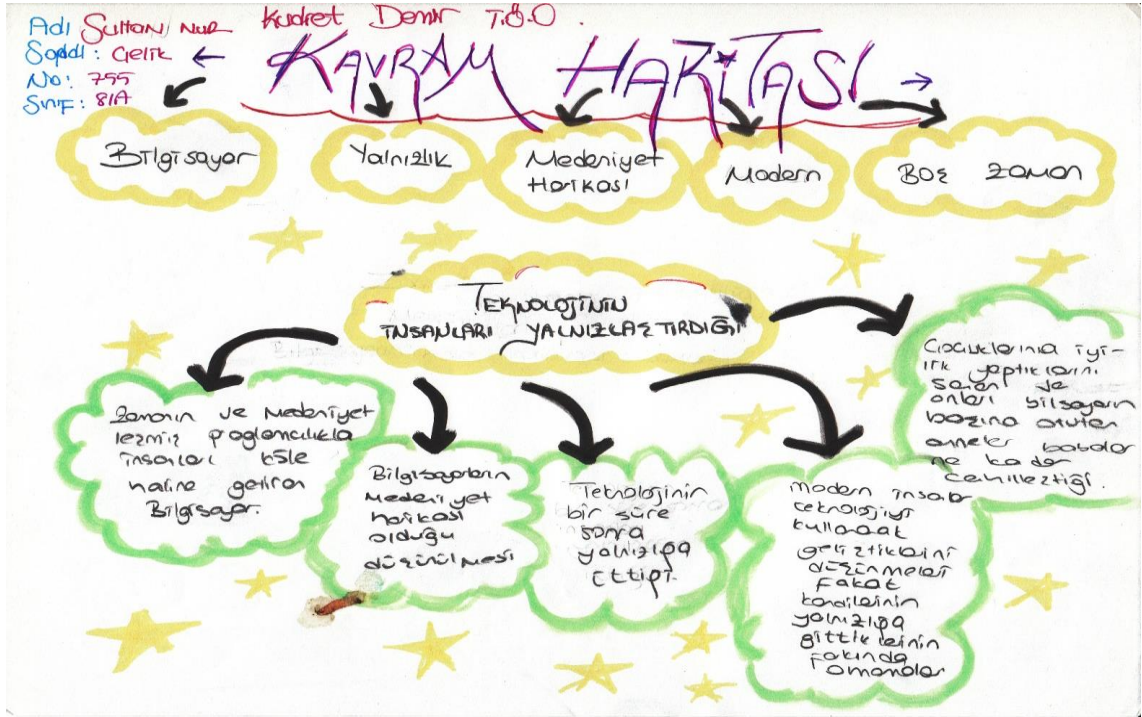 Adı Sultan Nur
Soyadı: Çelik
No: 755
Sınıf: 8/A
Kudret Demir T.Ö.O.
KAVRAM HARİTASI
Bilgisayar
Yalnızlık
Medeniyet
Harikası
Modern
Boş zaman
TEKNOLOJİNİN
İNSANLARI YALNIZLAŞTIRDIĞI
Zamanın ve Medeniyet
insanları köle
haline getiren
Bilgisayar.
Bilgisayarların
Medeniyet
harikası
olduğu
düşünülmesi
Teknolojinin
bir süre
sonra
yalnızlığa
ittiği.
modern insanlar
teknolojiyi
kullanarak
geliştiklerini
düşünmeleri
fakat
kendilerinin
yalnızlığa
gittiklerinin
farkında
olmamaları
Çocuklarına iyi-
lik yaptıklarını
sanan ve
onları bilgsayarın
başına oturtan
anneler babalar
ne kadar
cahilleştiği.